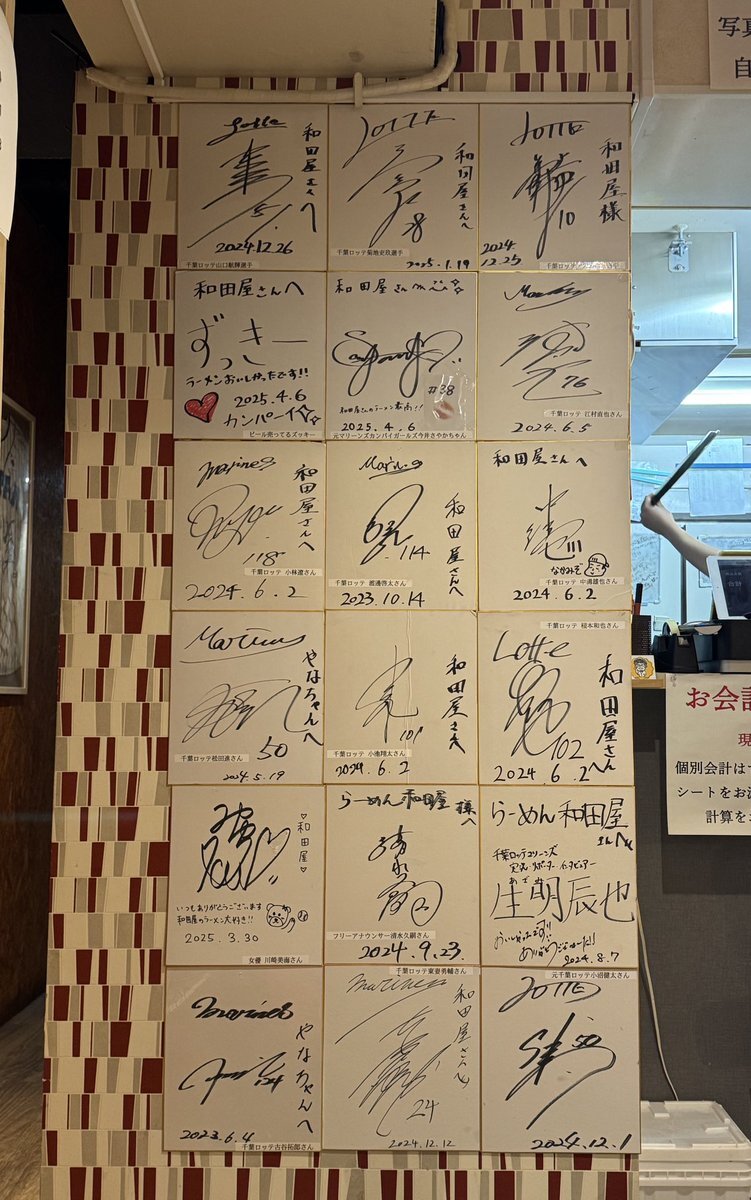 写真
自
Lotte
和田屋さんへ
2024 12.26
千葉ロッテ山口航輝選手
LOTTE
和田屋さんへ
28
千葉ロッテ菊地吏玖選手
2025.1.19
LOTTE
和田屋様
10
2024
12.25
和田屋さんへ
ずっきー
ラーメンおいしかったです!!
2025.4.6
カンパーイ☆
ビール売ってるズッキー
和田屋さんへ
#38
和田屋さんのラーメン最高!!
2025.4.6
元マリーンズカンパイガールズ今井さやかちゃん
Marines
76
千葉ロッテ 江村直也さん
2024.6.5
marines
和田屋さんへ
118
千葉ロッテ 小林澄さん
2024.6.2
Marines
和田屋さんへ
114
千葉ロッテ 渡邊啓太さん
2023.10.14
和田屋さんへ
なかみぞ
千葉ロッテ 中溝雄也さん
2024.6.2
Marines
やなちゃんへ
50
千葉ロッテ松田進さん
2024.5.19
和田屋さんへ
101
千葉ロッテ 小池翔太さん
2024.6.2
千葉ロッテ 植本和也さん
Lotte
和田屋さんへ
102
2024.6.2
♡和田屋♡
いつもありがとうございます
和田屋のラーメン大好き!!
2025.3.30
女優 川崎美海さん
らーめん 和田屋様へ
清水久嗣
フリーアナウンサー清水久嗣さん
2024.9.23.
らーめん 和田屋さんへ
千葉ロッテマリーンズ
庄明辰也
おいしかったです!!
ありがとうございました!!
2024.8.7
marines
やなちゃんへ
124
2023.6.4
千葉ロッテ古谷拓郎さん
千葉ロッテ東妻勇輔さん
marines
和田屋さんへ
24
2024.12.12
元千葉ロッテ小沼健太さん
LOTTE
50
2024.12.1
お会計
現
個別会計は
シートをお
計算を